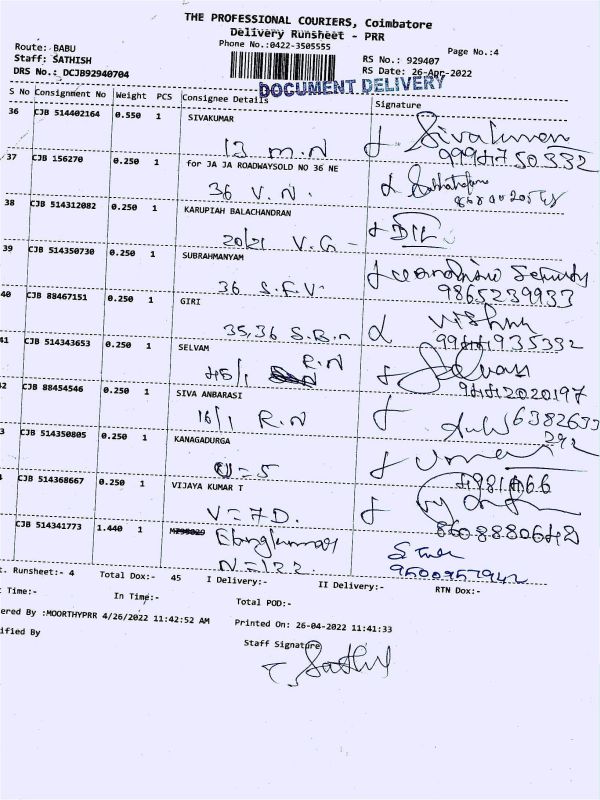 THE PROFESSIONAL COURIERS, Coimbatore
Delivery Runsheet - PRR
Phone No.:0422-3505555
Page No.:4
Route: BABU
Staff: SATHISH
DRS No.: DCJB92940704
RS No.: 929407
RS Date: 26-Apr-2022
DOCUMENT DELIVERY
S No Consignment No Weight PCS Consignee Details Signature
36 CJB 514402164 0.550 1 SIVAKUMAR
13 M.N Sivakumar
37 CJB 156270 0.250 1 for JA JA ROADWAYSOLD NO 36 NE
36 V.N.
38 CJB 514312082 0.250 1 KARUPIAH BALACHANDRAN
20/21 V.G -
39 CJB 514350730 0.250 1 SUBRAHMANYAM
36 S.F.V. 9865239933
40 CJB 88467151 0.250 1 GIRI
35,36 S.B.n Vishnu
41 CJB 514343653 0.250 1 SELVAM
45/1 R.N Selvam
2 CJB 88454546 0.250 1 SIVA ANBARASI
16/1 R.N 6382633
292
3 CJB 514350805 0.250 1 KANAGADURGA
U=5
CJB 514368667 0.250 1 VIJAYA KUMAR T
V=7D. 8608880642
CJB 514341773 1.440 1
N=122. 9500957942
t. Runsheet:- 4 Total Dox:- 45 I Delivery:- II Delivery:- RTN Dox:-
Time:- In Time:- Total POD:-
ered By :MOORTHYPRR 4/26/2022 11:42:52 AM Printed On: 26-04-2022 11:41:33
ified By Staff Signature